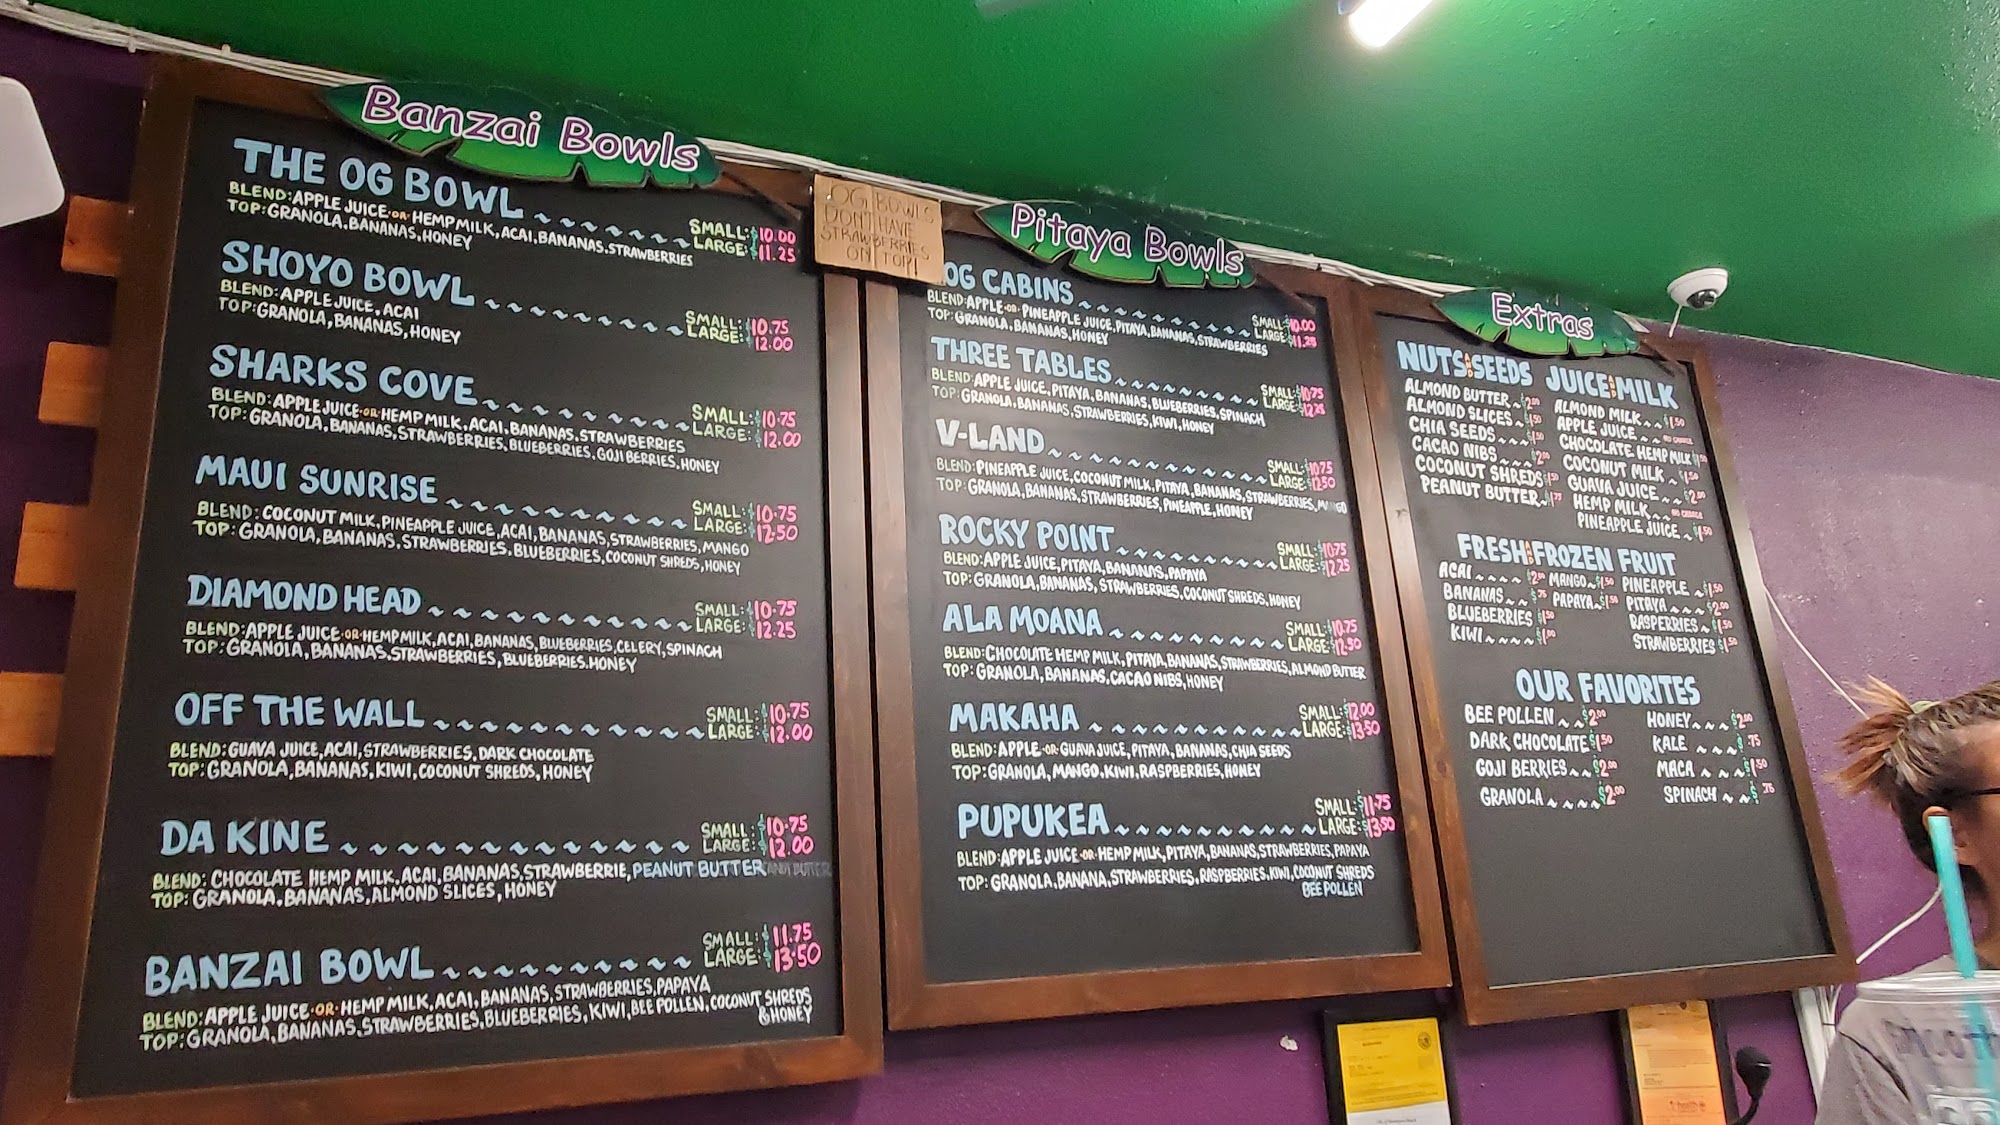 Banzai Bowls
THE OG BOWL
SMALL: $10.00
LARGE: $11.25
BLEND: APPLE JUICE ·OR· HEMP MILK, ACAI, BANANAS, STRAWBERRIES
TOP: GRANOLA, BANANAS, HONEY
SHOYO BOWL
SMALL: $10.75
LARGE: $12.00
BLEND: APPLE JUICE, ACAI
TOP: GRANOLA, BANANAS, HONEY
SHARKS COVE
SMALL: $10.75
LARGE: $12.00
BLEND: APPLE JUICE ·OR· HEMP MILK, ACAI, BANANAS, STRAWBERRIES
TOP: GRANOLA, BANANAS, STRAWBERRIES, BLUEBERRIES, GOJI BERRIES, HONEY
MAUI SUNRISE
SMALL: $10.75
LARGE: $12.50
BLEND: COCONUT MILK, PINEAPPLE JUICE, ACAI, BANANAS, STRAWBERRIES, MANGO
TOP: GRANOLA, BANANAS, STRAWBERRIES, BLUEBERRIES, COCONUT SHREDS, HONEY
DIAMOND HEAD
SMALL: $10.75
LARGE: $12.25
BLEND: APPLE JUICE ·OR· HEMP MILK, ACAI, BANANAS, BLUEBERRIES, CELERY, SPINACH
TOP: GRANOLA, BANANAS, STRAWBERRIES, BLUEBERRIES, HONEY
OFF THE WALL
SMALL: $10.75
LARGE: $12.00
BLEND: GUAVA JUICE, ACAI, STRAWBERRIES, DARK CHOCOLATE
TOP: GRANOLA, BANANAS, KIWI, COCONUT SHREDS, HONEY
DA KINE
SMALL: $10.75
LARGE: $12.00
BLEND: CHOCOLATE HEMP MILK, ACAI, BANANAS, STRAWBERRIE, PEANUT BUTTER
TOP: GRANOLA, BANANAS, ALMOND SLICES, HONEY
BANZAI BOWL
SMALL: $11.75
LARGE: $13.50
BLEND: APPLE JUICE ·OR· HEMP MILK, ACAI, BANANAS, STRAWBERRIES, PAPAYA
TOP: GRANOLA, BANANAS, STRAWBERRIES, BLUEBERRIES, KIWI, BEE POLLEN, COCONUT SHREDS
& HONEY
OG BOWLS
DON'T HAVE
STRAWBERRIES
ON TOP!
Pitaya Bowls
OG CABINS
SMALL: $10.00
LARGE: $11.25
BLEND: APPLE ·OR· PINEAPPLE JUICE, PITAYA, BANANAS, STRAWBERRIES
TOP: GRANOLA, BANANAS, HONEY
THREE TABLES
SMALL: $10.75
LARGE: $12.25
BLEND: APPLE JUICE, PITAYA, BANANAS, BLUEBERRIES, SPINACH
TOP: GRANOLA, BANANAS, STRAWBERRIES, KIWI, HONEY
V-LAND
SMALL: $10.75
LARGE: $12.50
BLEND: PINEAPPLE JUICE, COCONUT MILK, PITAYA, BANANAS, STRAWBERRIES, MANGO
TOP: GRANOLA, BANANAS, STRAWBERRIES, PINEAPPLE, HONEY
ROCKY POINT
SMALL: $10.75
LARGE: $12.25
BLEND: APPLE JUICE, PITAYA, BANANAS, PAPAYA
TOP: GRANOLA, BANANAS, STRAWBERRIES, COCONUT SHREDS, HONEY
ALA MOANA
SMALL: $10.75
LARGE: $12.50
BLEND: CHOCOLATE HEMP MILK, PITAYA, BANANAS, STRAWBERRIES, ALMOND BUTTER
TOP: GRANOLA, BANANAS, CACAO NIBS, HONEY
MAKAHA
SMALL: $12.00
LARGE: $13.50
BLEND: APPLE ·OR· GUAVA JUICE, PITAYA, BANANAS, CHIA SEEDS
TOP: GRANOLA, MANGO, KIWI, RASPBERRIES, HONEY
PUPUKEA
SMALL: $11.75
LARGE: $13.50
BLEND: APPLE JUICE ·OR· HEMP MILK, PITAYA, BANANAS, STRAWBERRIES, PAPAYA
TOP: GRANOLA, BANANA, STRAWBERRIES, RASPBERRIES, KIWI, COCONUT SHREDS
BEE POLLEN
Extras
NUTS AND SEEDS
ALMOND BUTTER $2.00
ALMOND SLICES $1.50
CHIA SEEDS $1.50
CACAO NIBS $2.00
COCONUT SHREDS $1.50
PEANUT BUTTER $1.75
JUICE AND MILK
ALMOND MILK $1.50
APPLE JUICE NO CHARGE
CHOCOLATE HEMP MILK
COCONUT MILK $1.50
GUAVA JUICE $2.00
HEMP MILK NO CHARGE
PINEAPPLE JUICE $1.50
FRESH AND FROZEN FRUIT
ACAI $2.00
BANANAS $.75
BLUEBERRIES $1.50
KIWI $1.00
MANGO $1.50
PAPAYA $1.50
PINEAPPLE $1.50
PITAYA $2.00
RASPERRIES $1.50
STRAWBERRIES $1.50
OUR FAVORITES
BEE POLLEN $2.00
DARK CHOCOLATE $1.50
GOJI BERRIES $2.00
GRANOLA $2.00
HONEY $2.00
KALE $.75
MACA $1.50
SPINACH $.75